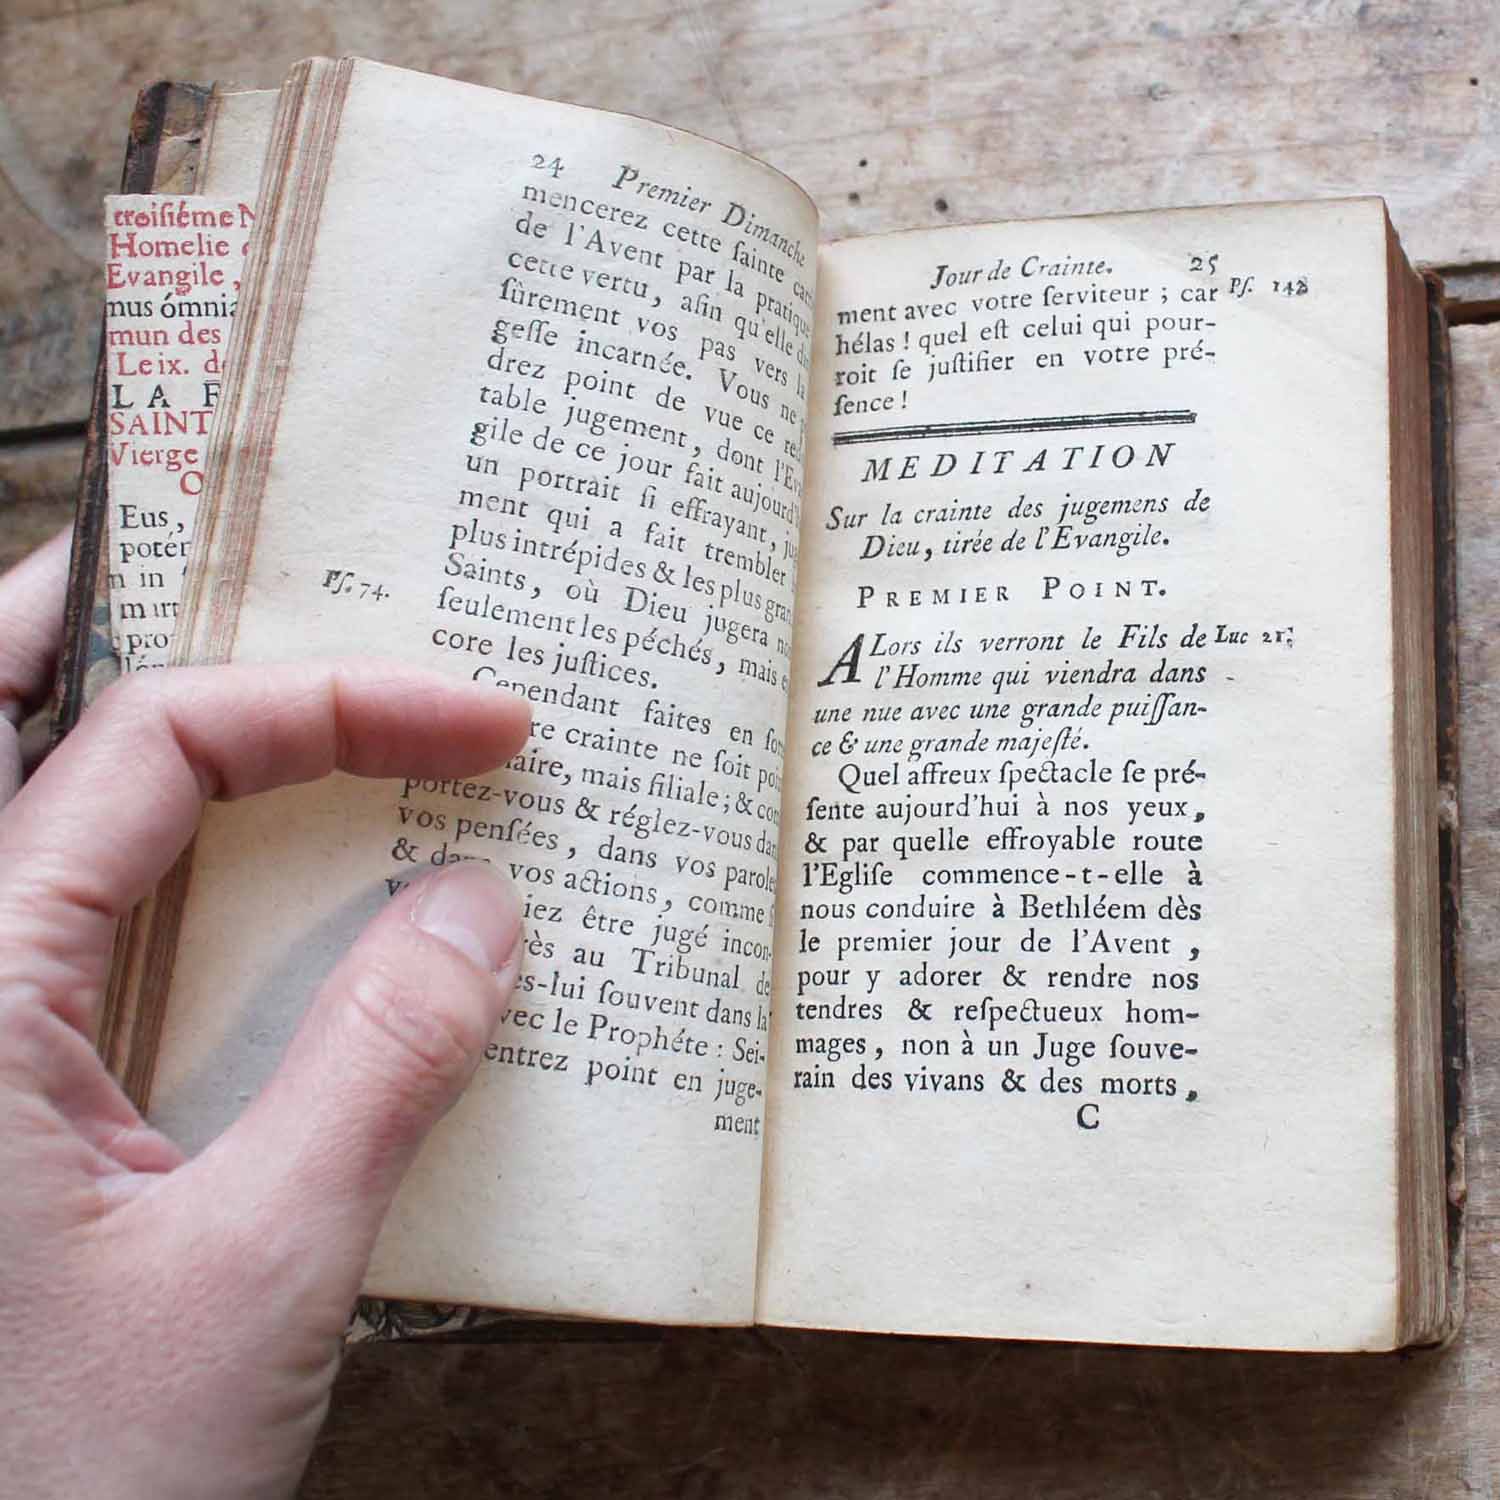 troiſiéme
Homelie
Evangile,
mus ómnia
mun des
Leix. de
LA
SAINT
Vierge
O
Eus,
potén
in
mart
pro
24 Premier Dimanche
mencerez cette ſainte
de l'Avent par la pratique
cette vertu, afin qu'elle
ſûrement vos pas vers la
geſſe incarnée. Vous ne
drez point de vue ce
table jugement, dont l'Evan
gile de ce jour fait aujourd'
un portrait ſi effrayant,
ment qui a fait trembler
plus intrépides & les plus
Pſ. 74. Saints, où Dieu jugera
ſeulement les péchés, mais
core les juſtices.
Cependant faites en
crainte ne ſoit
mais filiale; &
portez-vous & réglez-vous
vos penſées, dans vos
& dans vos actions, comme
être jugé incon-
au Tribunal de
ſouvent dans la
avec le Prophéte : Sei-
entrez point en juge-
ment
Jour de Crainte. 25
ment avec votre ſerviteur ; car Pſ. 142
hélas ! quel eſt celui qui pour-
roit ſe juſtifier en votre pré-
ſence !
MEDITATION
Sur la crainte des jugemens de
Dieu, tirée de l'Evangile.
PREMIER POINT.
ALors ils verront le Fils de Luc 21.
l'Homme qui viendra dans
une nue avec une grande puiſſan-
ce & une grande majeſté.
Quel affreux ſpectacle ſe pré-
ſente aujourd'hui à nos yeux,
& par quelle effroyable route
l'Egliſe commence-t-elle à
nous conduire à Bethléem dès
le premier jour de l'Avent ,
pour y adorer & rendre nos
tendres & reſpectueux hom-
mages, non à un Juge ſouve-
rain des vivans & des morts,
C